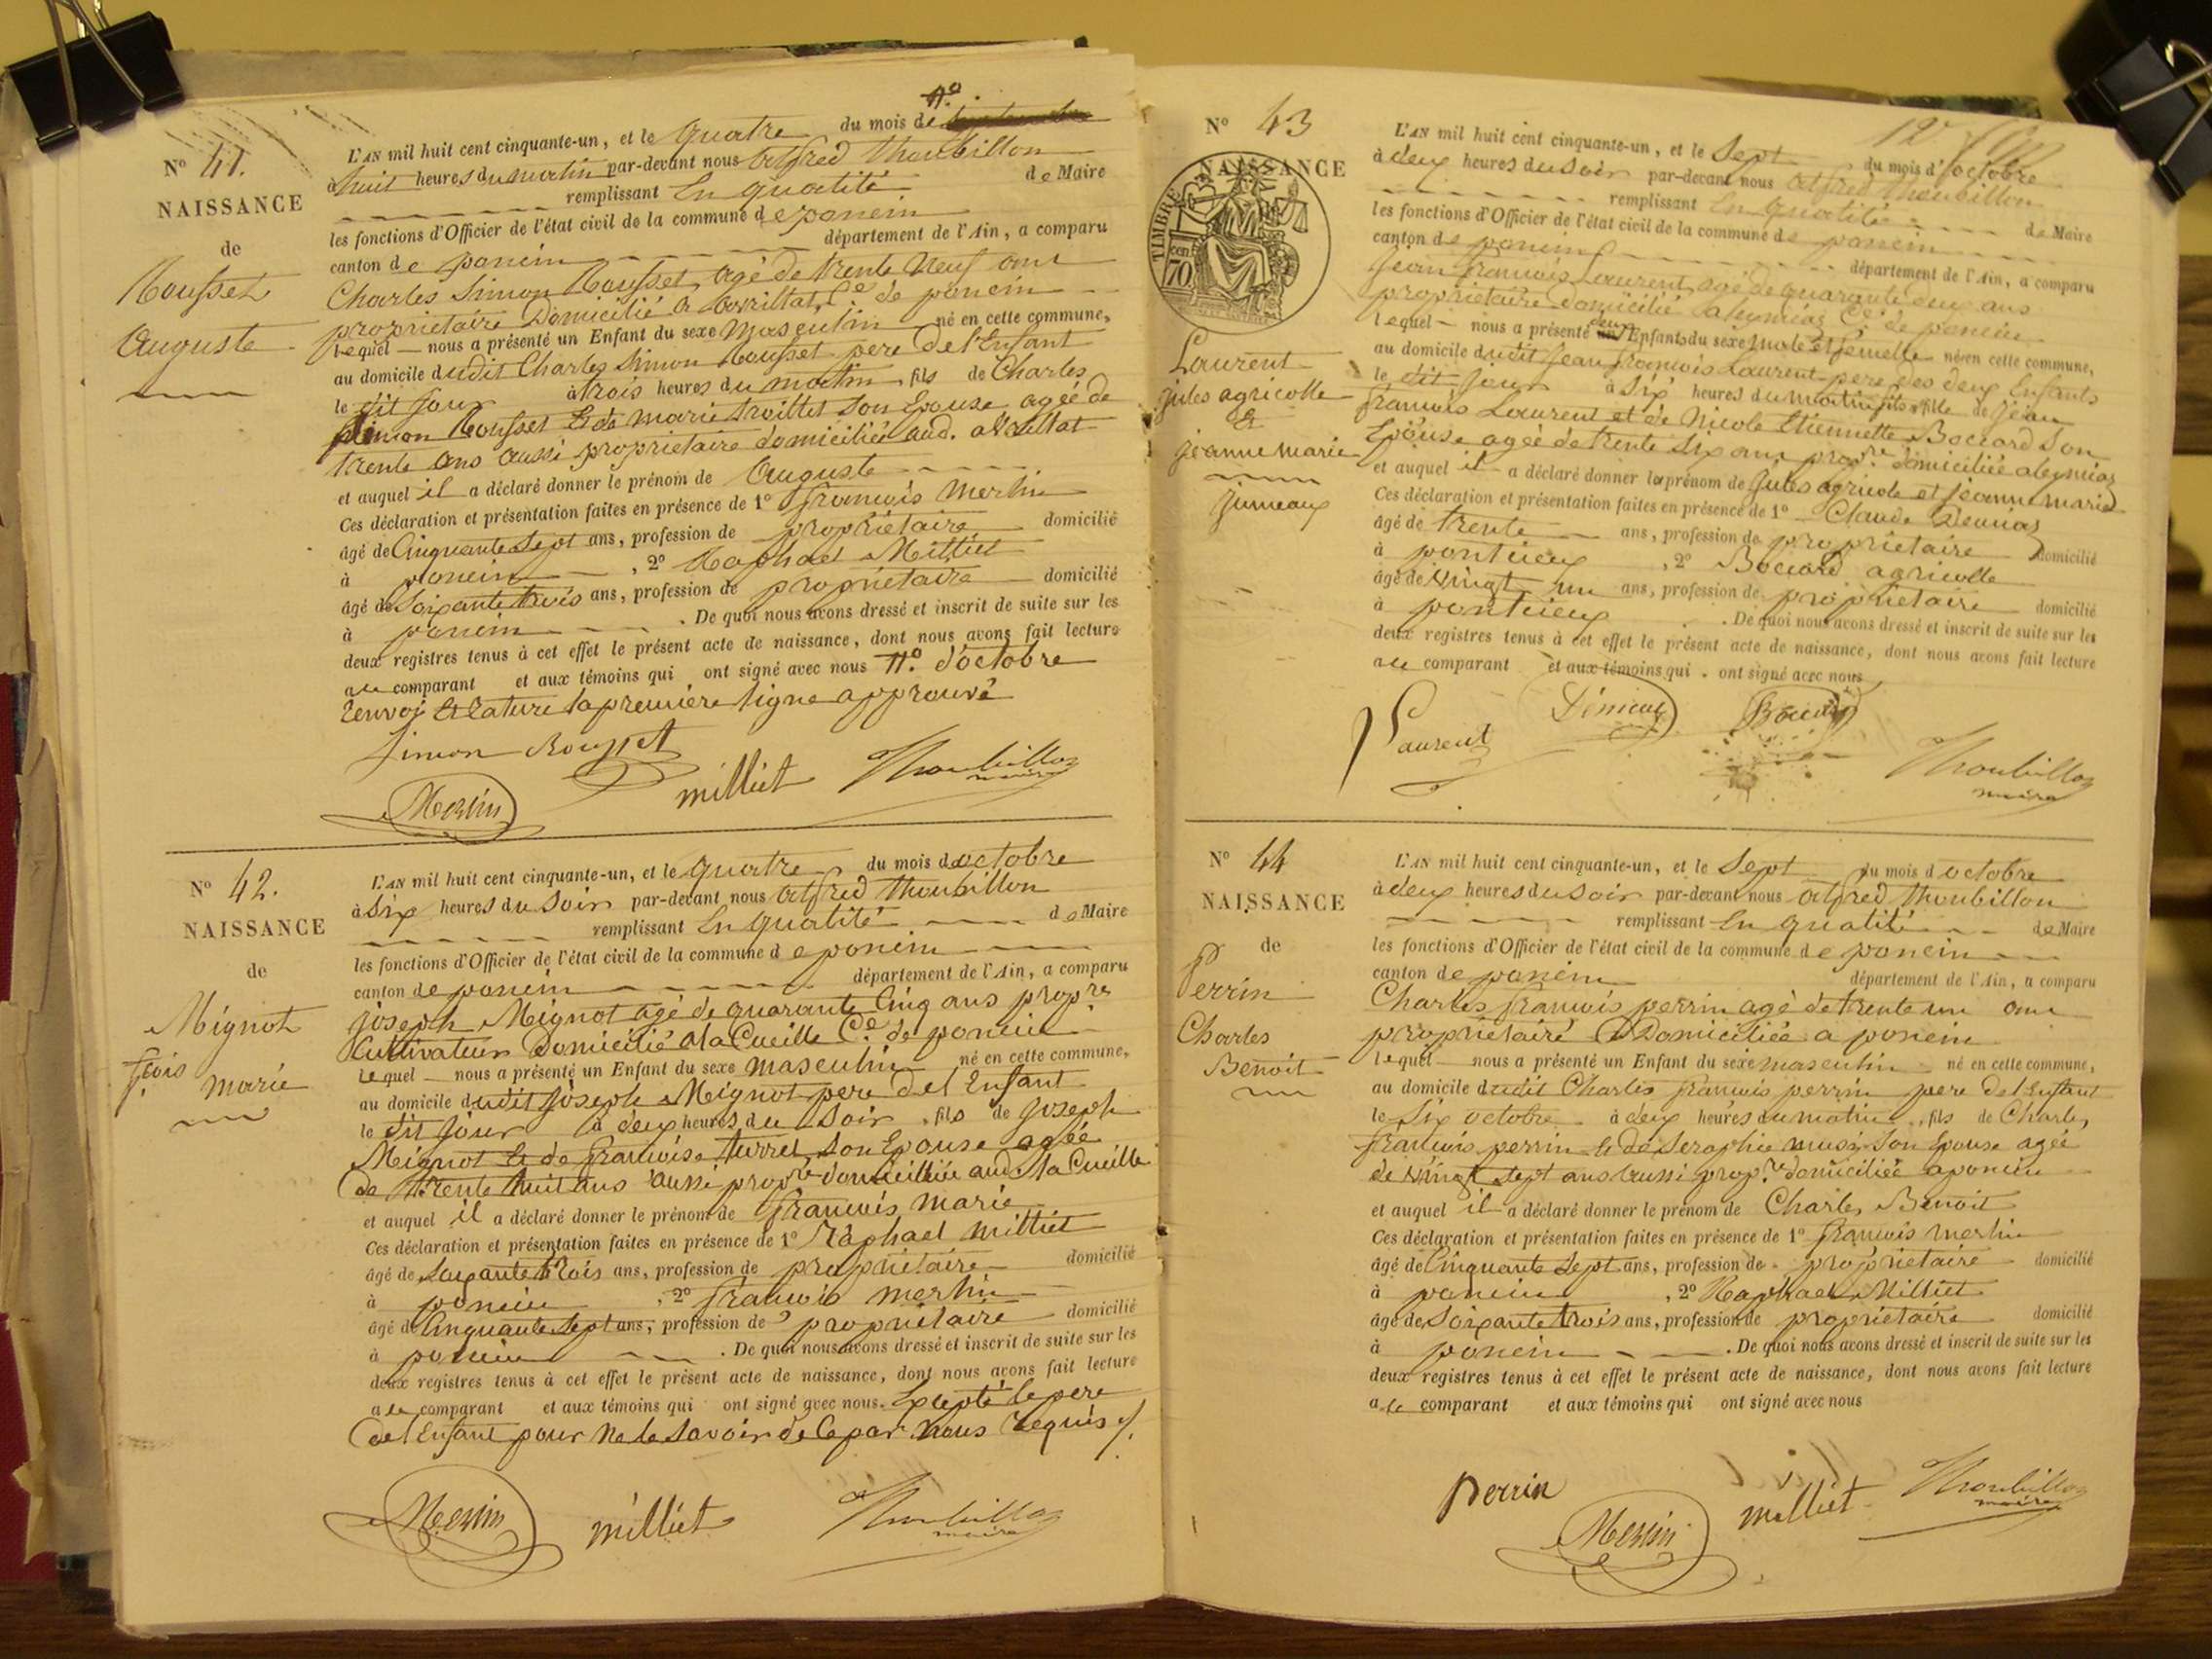 Nº 41.
NAISSANCE
de
Rousset
Auguste
nº.
L'AN mil huit cent cinquante-un, et le quatre du mois de
à huit heures du matin par-devant nous alfred thoubillon
remplissant En qualité de Maire
les fonctions d'Officier de l'état civil de la commune de poncin
canton de poncin département de l'Ain, a comparu
Charles Simon Rousset, agé de trente Neuf ans
proprietaire Domicilié a Cce. de poncin
lequel nous a présenté un Enfant du sexe masculin né en cette commune,
au domicile dudit Charles Simon Rousset pere de l'Enfant
le dit jour à trois heures du matin, fils de Charles
Simon Rousset Et de marie trollet Son Epouse agée de
trente ans aussi proprietaire domiciliée aud.
et auquel il a déclaré donner le prénom de Auguste
Ces déclaration et présentation faites en présence de 1º françois Merlin
âgé de Cinquante Sept ans, profession de propriétaire domicilié
à poncin, 2º Raphael Milliet
âgé de Soixante trois ans, profession de propriétaire domicilié
à poncin. De quoi nous avons dressé et inscrit de suite sur les
deux registres tenus à cet effet le présent acte de naissance, dont nous avons fait lecture
au comparant et aux témoins qui ont signé avec nous nº. d'octobre
renvoi Et rature la première ligne approuvé
Simon Rousset
Merlin milliet Thoubillon
maire
Nº 42.
NAISSANCE
de
Mignot
fçois
marie
L'AN mil huit cent cinquante-un, et le quatre du mois d'octobre
à Six heures du Soir par-devant nous alfred thoubillon
remplissant En qualité de Maire
les fonctions d'Officier de l'état civil de la commune de poncin
canton de poncin département de l'Ain, a comparu
joseph Mignot agé de quarante Cinq ans propre
Cultivateur Domicilié a la Cueille Cce. de poncin
lequel nous a présenté un Enfant du sexe masculin né en cette commune,
au domicile dudit joseph Mignot pere de l'Enfant
le dit jour à deux heures du Soir, fils de joseph
Mignot Et de françoise turrel Son Epouse agée
de trente huit ans aussi propre domiciliée aud. la Cueille
et auquel il a déclaré donner le prénom de françois marie
Ces déclaration et présentation faites en présence de 1º Raphael milliet
âgé de Soixante trois ans, profession de propriétaire domicilié
à poncin, 2º françois merlin
âgé de Cinquante Sept ans, profession de propriétaire domicilié
à poncin. De quoi nous avons dressé et inscrit de suite sur les
deux registres tenus à cet effet le présent acte de naissance, dont nous avons fait lecture
au comparant et aux témoins qui ont signé avec nous. Excepté le pere
de l'Enfant pour Ne le Savoir de Ce par Nous requis
Merlin milliet Thoubillon
maire
Nº 43
NAISSANCE
TIMBRE
70
Laurent
jules agricolle
Et
jeanne marie
jumeaux
L'AN mil huit cent cinquante-un, et le Sept du mois d'octobre
à deux heures du Soir par-devant nous alfred thoubillon
remplissant En qualité de Maire
les fonctions d'Officier de l'état civil de la commune de poncin
canton de poncin département de l'Ain, a comparu
jean françois Laurent, agé de quarante deux ans
proprietaire domicilié a leymiaz Cce. de poncin
lequel nous a présenté deux Enfants du sexe male et femelle nés en cette commune,
au domicile dudit jean françois Laurent pere des deux Enfants
le dit jour à Six heures du matin, fils et fille de jean
françois Laurent et de Nicole Etiennette Boccard Son
Epouse agée de trente Six ans propre. domiciliée a leymiaz
et auquel il a déclaré donner le prénom de jules agricole et jeanne marie
Ces déclaration et présentation faites en présence de 1º Claude
âgé de trente ans, profession de propriétaire domicilié
à pontcieux, 2º Boccard agricolle
âgé de vingt un ans, profession de propriétaire domicilié
à pontcieux. De quoi nous avons dressé et inscrit de suite sur les
deux registres tenus à cet effet le présent acte de naissance, dont nous avons fait lecture
au comparant et aux témoins qui ont signé avec nous
Laurent Thoubillon
maire
Nº 44
NAISSANCE
de
Perrin
Charles
Benoit
L'AN mil huit cent cinquante-un, et le Sept du mois d'octobre
à deux heures du Soir par-devant nous alfred thoubillon
remplissant En qualité de Maire
les fonctions d'Officier de l'état civil de la commune de poncin
canton de poncin département de l'Ain, a comparu
Charles françois perrin agé de trente un ans
propriétaire Domiciliée a poncin
lequel nous a présenté un Enfant du sexe masculin né en cette commune,
au domicile dudit Charles françois perrin pere de l'Enfant
le Six octobre à deux heures du matin, fils de Charles
françois perrin Et de Seraphie Son Epouse agée
de vingt Sept ans aussi propre. domiciliée a poncin
et auquel il a déclaré donner le prénom de Charles Benoit
Ces déclaration et présentation faites en présence de 1º françois merlin
âgé de Cinquante Sept ans, profession de propriétaire domicilié
à poncin, 2º Raphael Milliet
âgé de Soixante trois ans, profession de propriétaire domicilié
à poncin. De quoi nous avons dressé et inscrit de suite sur les
deux registres tenus à cet effet le présent acte de naissance, dont nous avons fait lecture
au comparant et aux témoins qui ont signé avec nous
perrin
Merlin milliet Thoubillon
maire